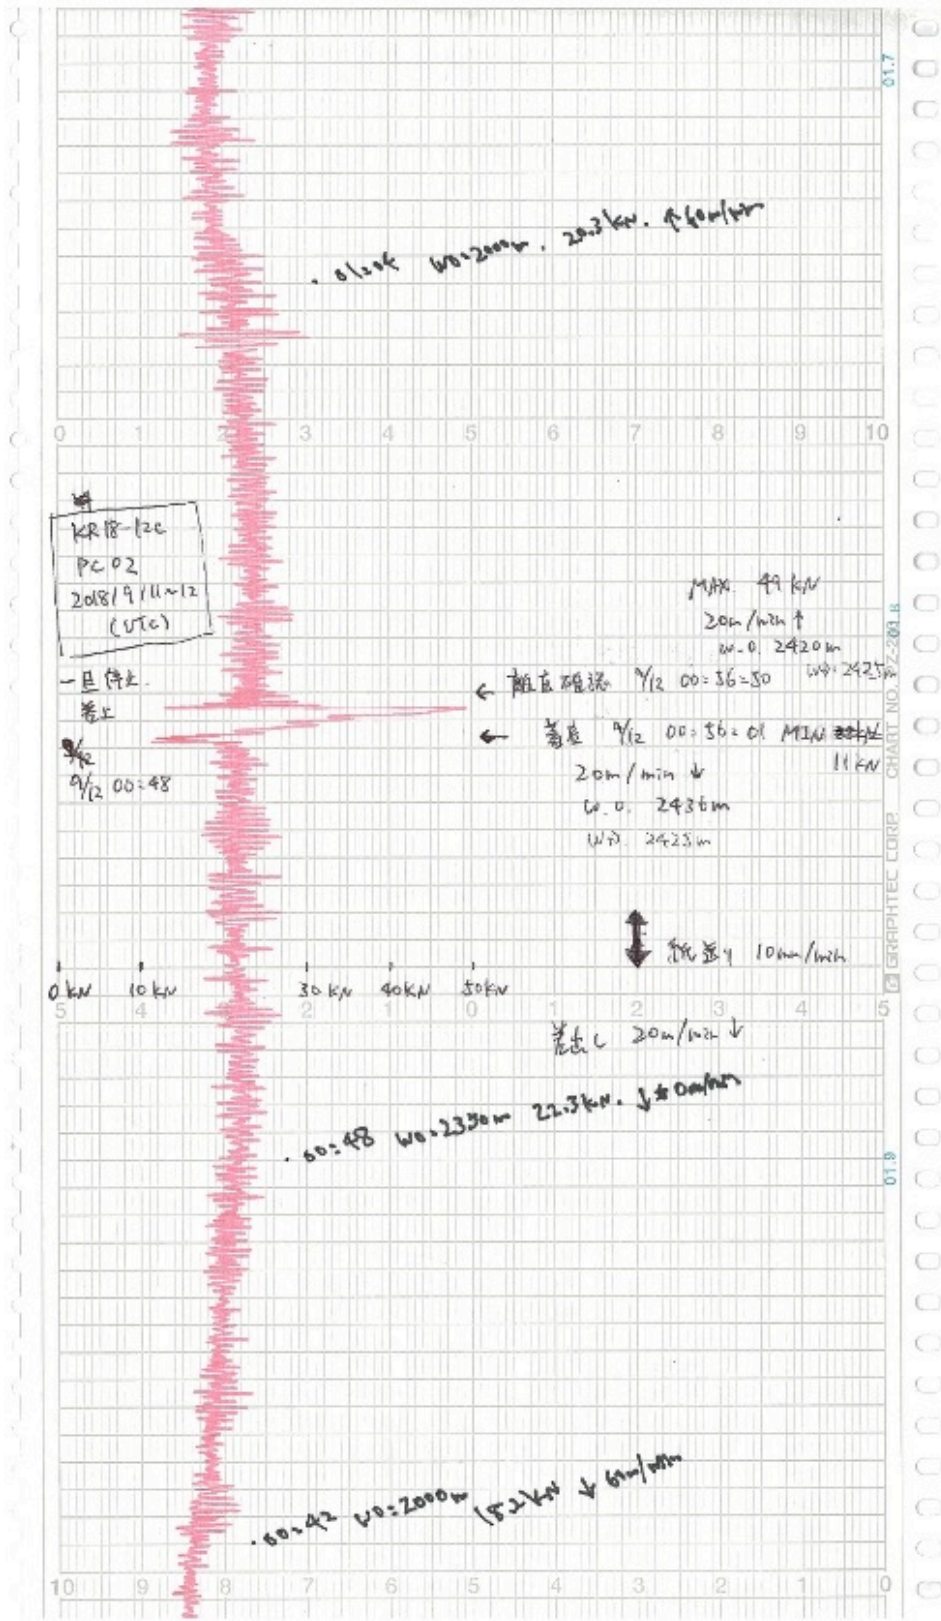 01.7
01:04 WO=2000m, 20.3kN. ↑60m/min
0 1 2 3 4 5 6 7 8 9 10
KR18-12C
PC02
2018/9/11~12
(UTC)
一旦停止
9/12 00:48
MAX 49 kN
20m/min ↑
w.o. 2420m
WD. 2425m
← 離底確認 9/12 00:56:50
← 着底 9/12 00:56:01 MIN
11 kN
20m/min ↓
w.o. 2436m
WD. 2425m
CHART NO. PZ-201
GRAPHTEC CORP.
紙送り 10mm/min
0 kN 10 kN 30 kN 40 kN 50 kN
5 4 3 2 1 0 1 2 3 4 5
差出し 20m/min ↓
00:48 WO=2350m 22.3kN. ↓
01.9
00:42 WO=2000m 18.2kN ↓ 60m/min
10 9 8 7 6 5 4 3 2 1 0